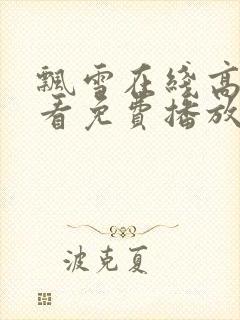 飘雪在线高
看免费播放
波克夏